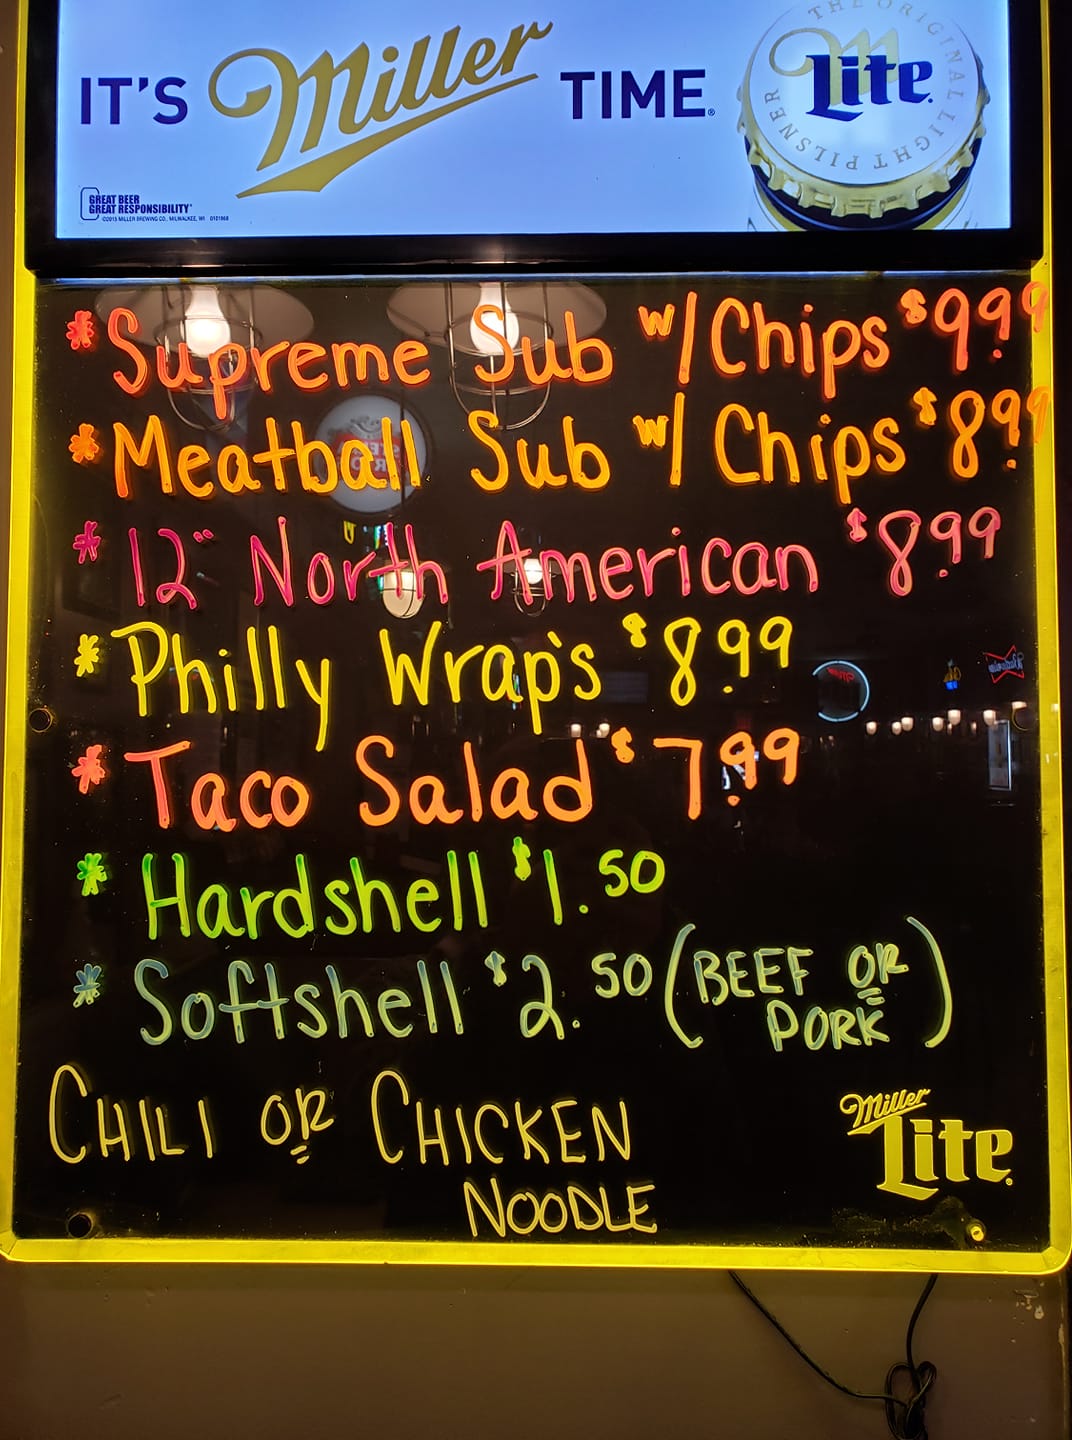 IT'S Miller TIME®
THE ORIGINAL LIGHT PILSNER
Lite
GREAT BEER
GREAT RESPONSIBILITY®
©2015 MILLER BREWING CO., MILWAUKEE, WI
* Supreme Sub w/ Chips $9.99
* Meatball Sub w/ Chips $8.99
* 12" North American $8.99
* Philly Wrap's $8.99
* Taco Salad $7.99
* Hardshell $1.50
* Softshell $2.50 (BEEF OR
PORK)
CHILI OR CHICKEN
NOODLE
Miller
Lite